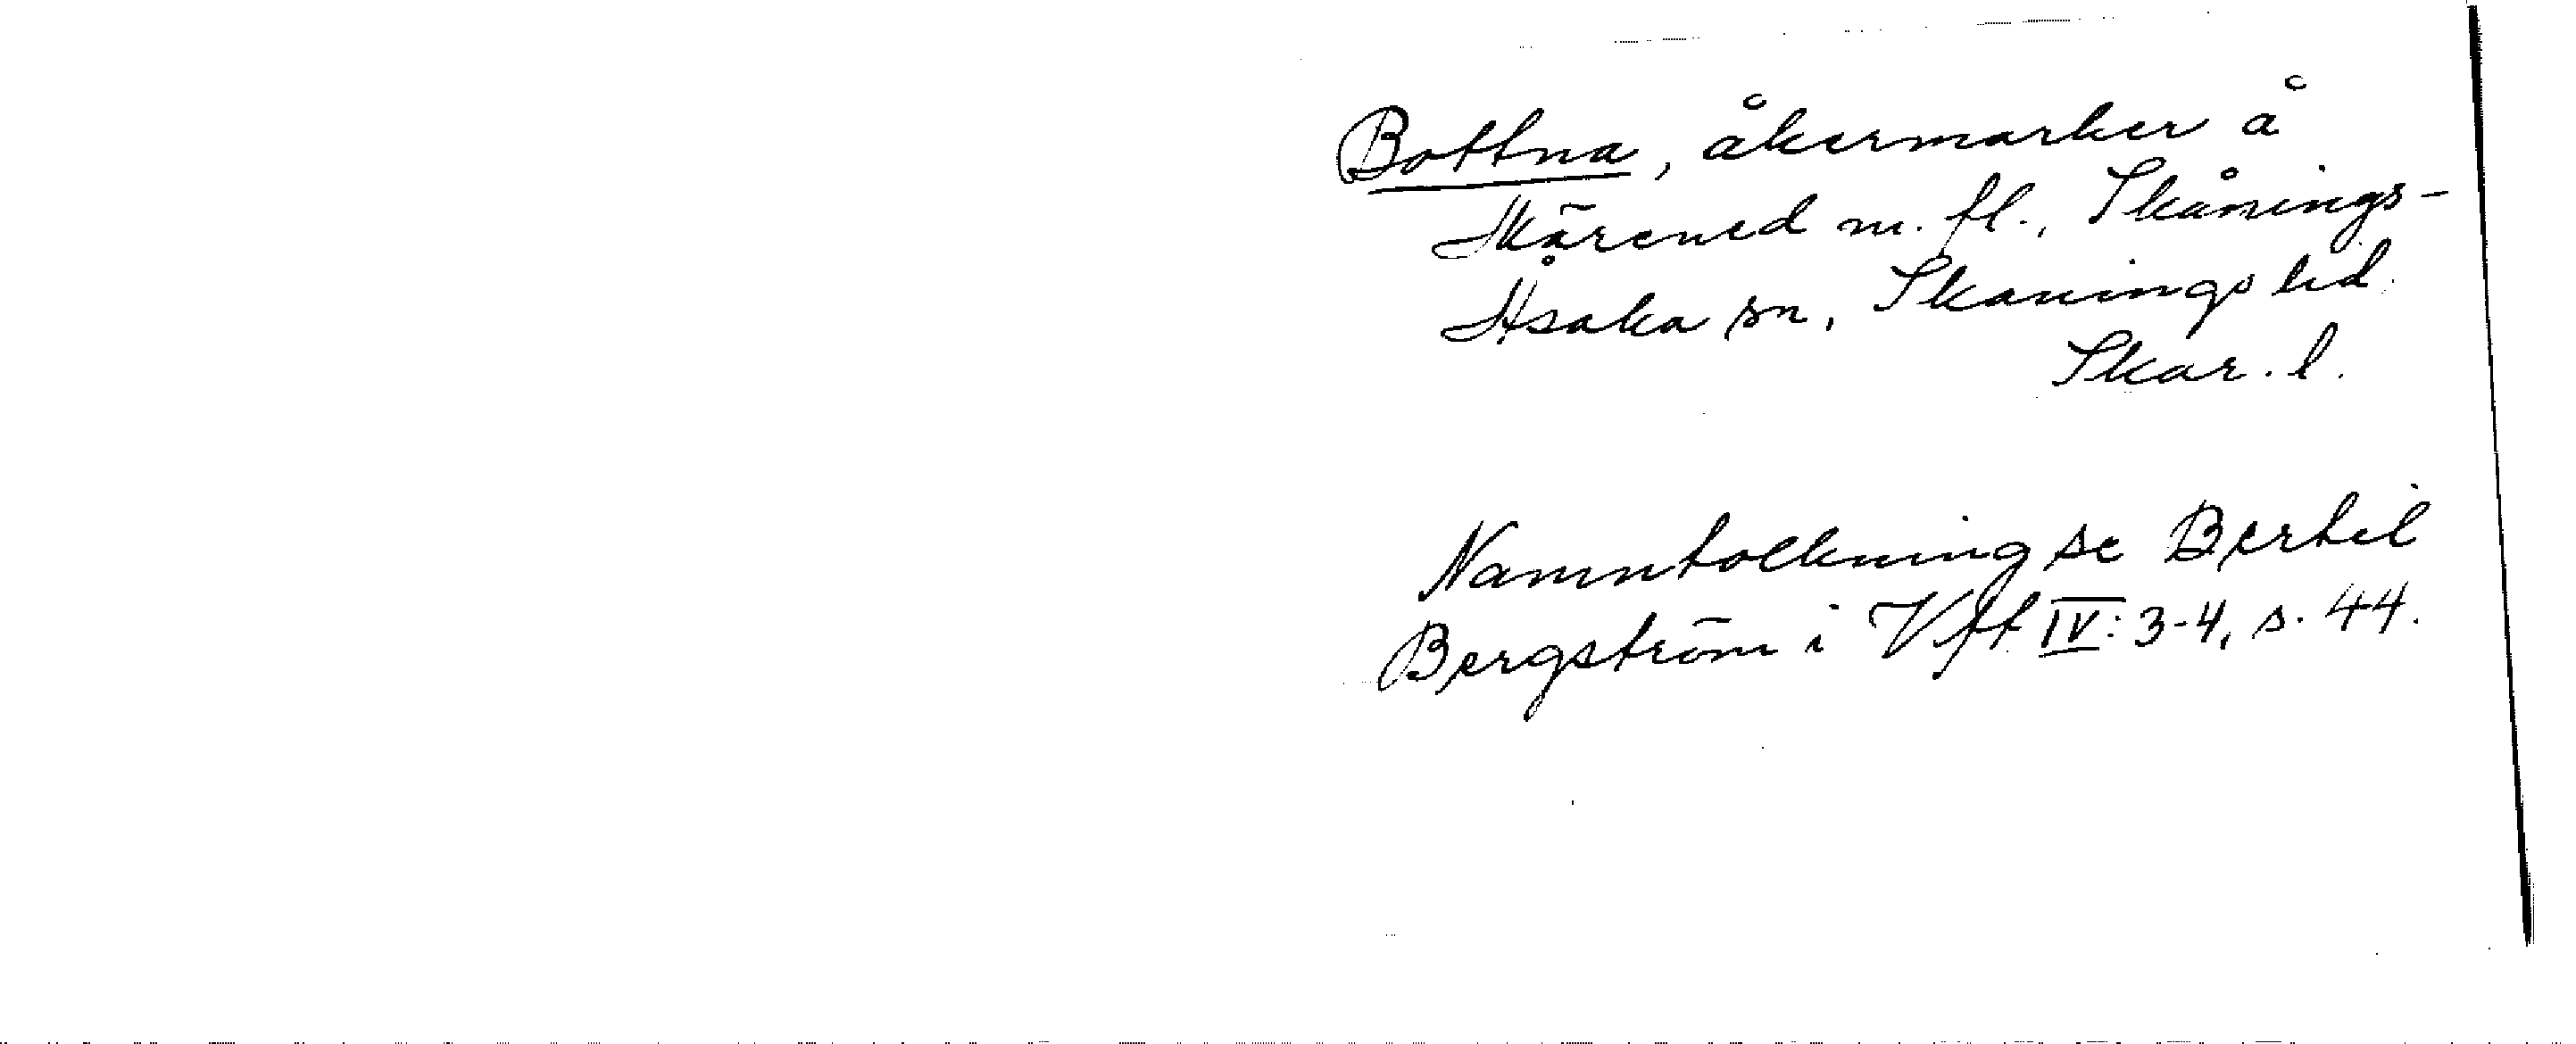 Bottna, åkermarker å
Skärened m. fl., Skånings-
Åsaka sn, Skånings hd.
Skar. l.
Namntolkning se Bertil
Bergström i Vftf IV: 3-4, s. 44.